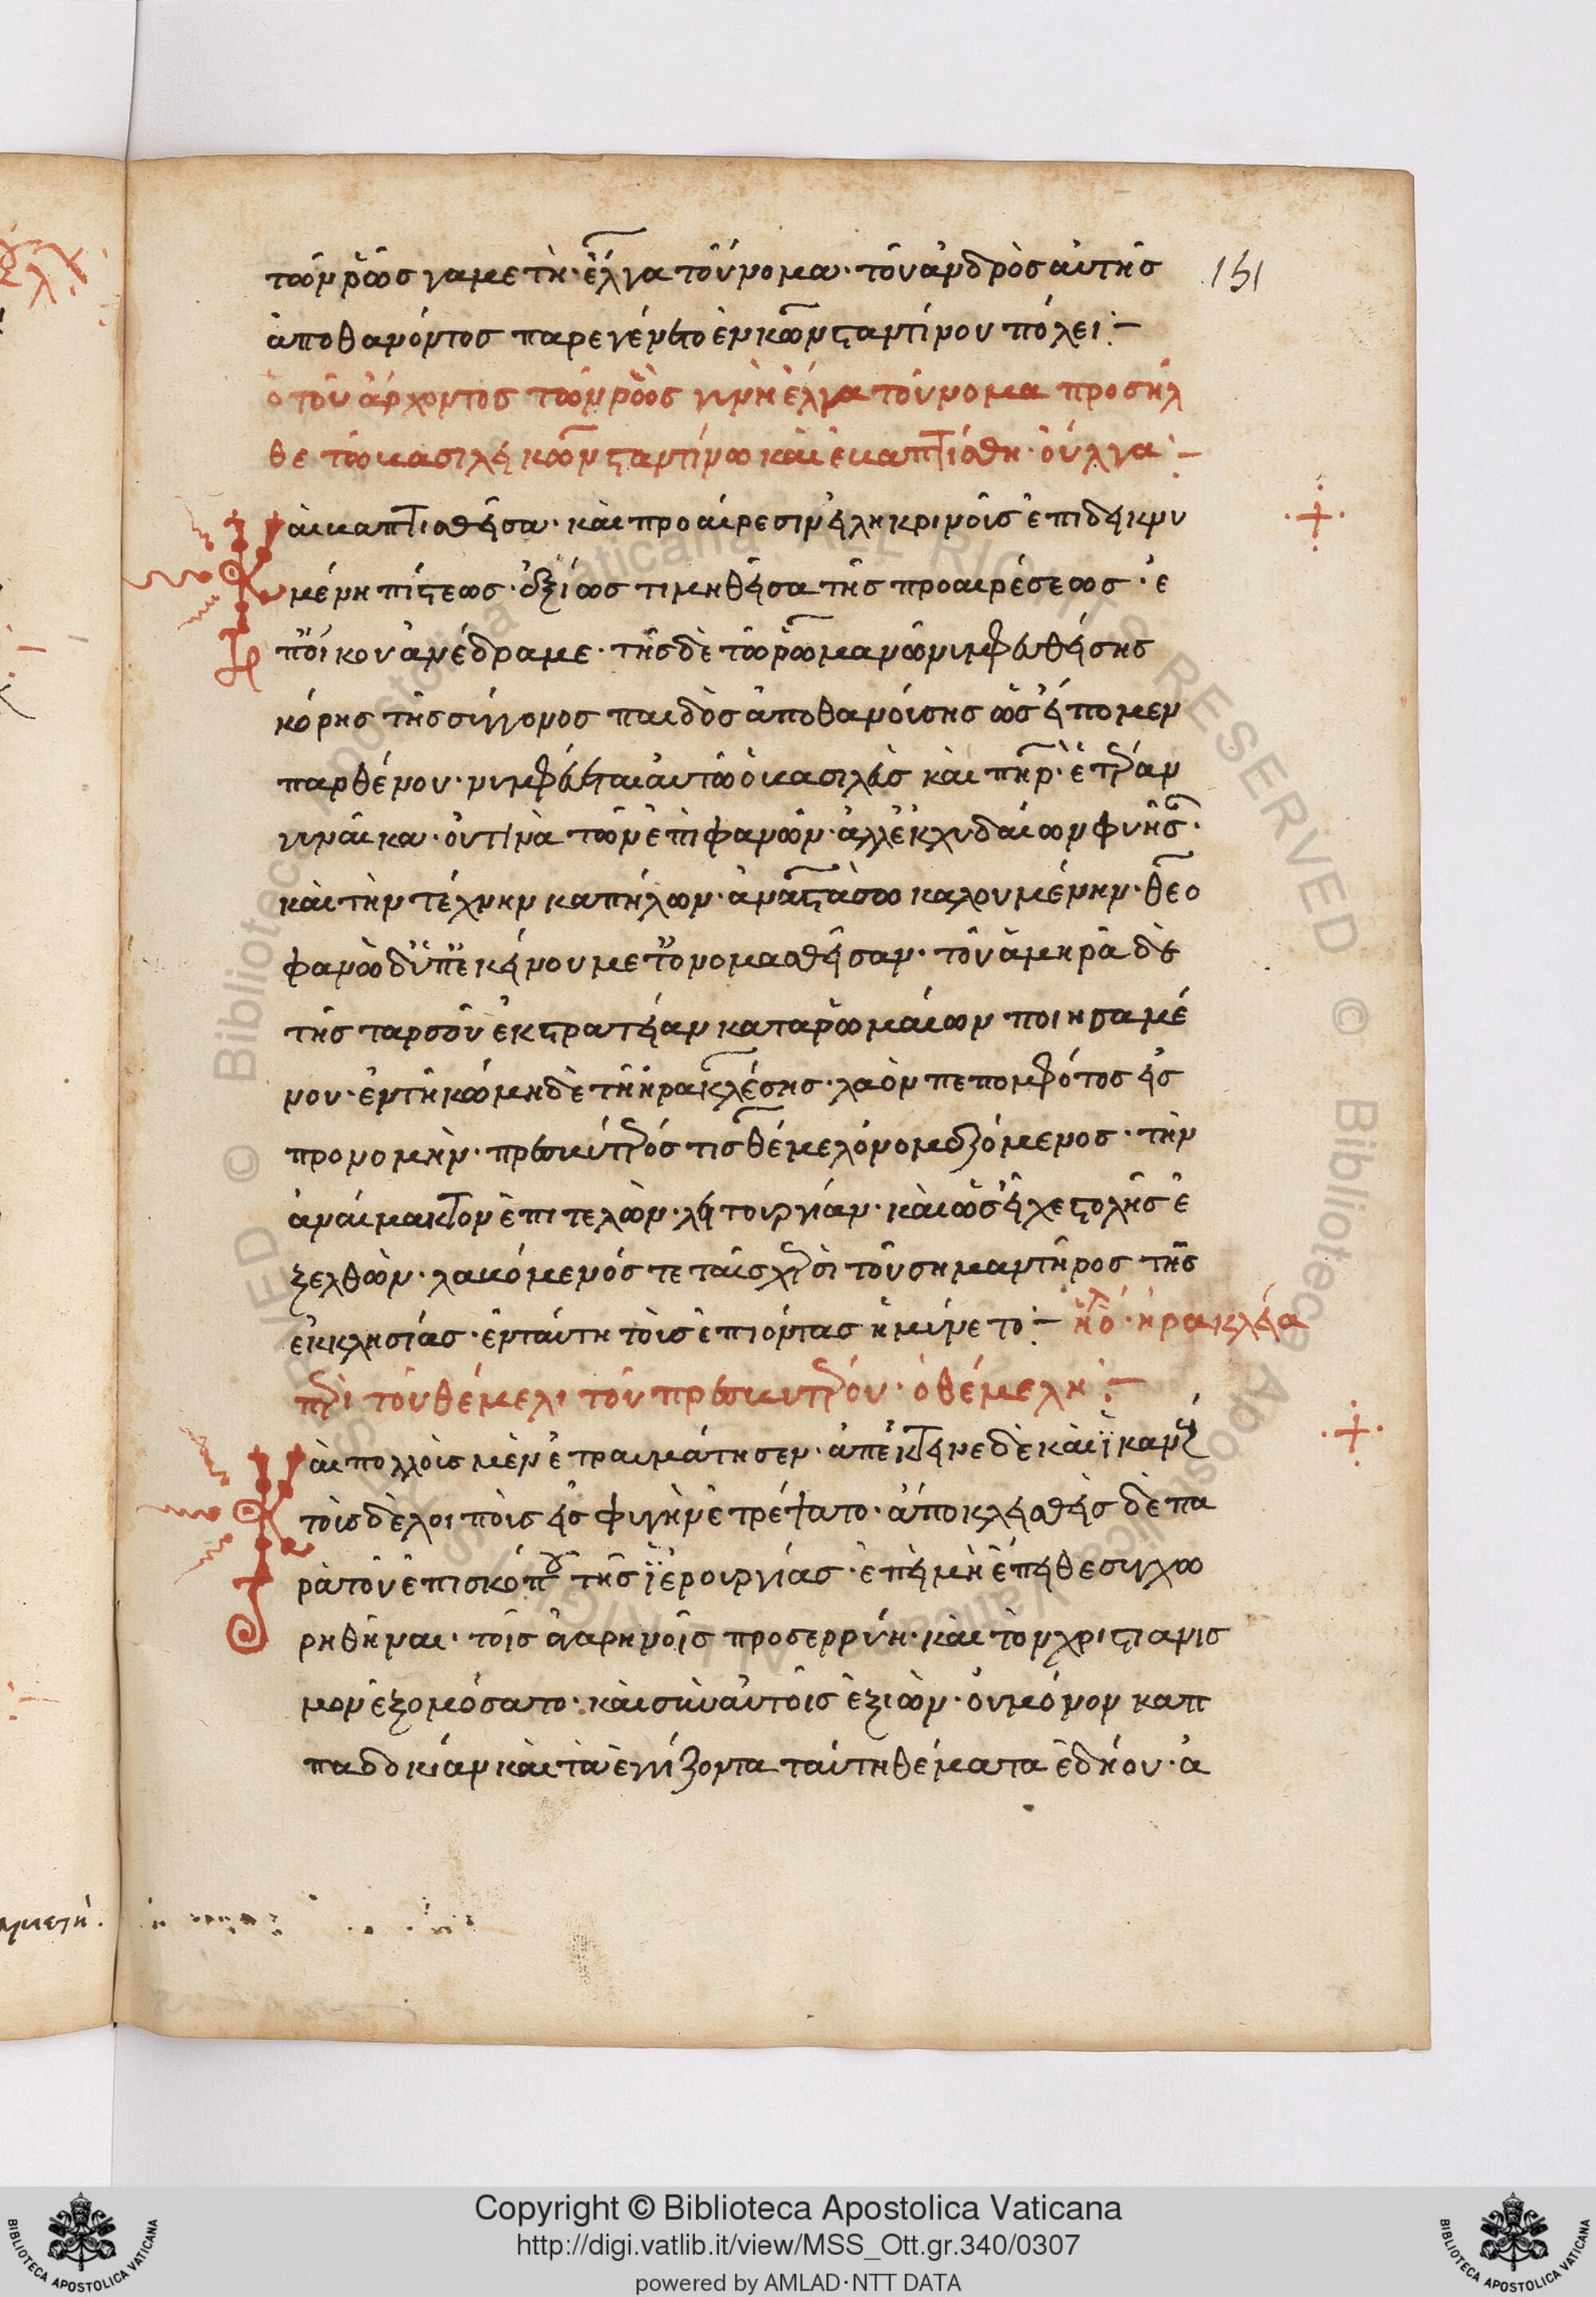 τῶν ῥῶς γαμετὴ· ἔλγα τοὔνομα· τοῦ ἀνδρὸς αὐτῆς
151
ἀποθανόντος παρεγένετο ἐν κωνσταντίνου πόλει :—
ὁ τοῦ ἄρχοντος τῶν ῥῶς γυνὴ ἔλγα τοὔνομα προσῆλ
θε τῶ βασιλεῖ κωνσταντίνω καὶ ἐβαπτίσθη· οὔλγα :—
Καὶ βαπτισθεῖσα· καὶ προαίρεσιν εἰληκρινοῖς ἐπιδεικνυ
μένη πίστεως· ἀξίως τιμηθεῖσα τῆς προαιρέσεως· ἐ
π' οἴκου ἀνέδραμε· τῆς δὲ τῶ ῥωμανῶ νυμφευθείσης
κόρης τῆς οὕγγονος παιδὸς ἀποθανούσης ὡς εἴπομεν
παρθένου· νυμφεύεται αὐτῶ ὁ βασιλεὺς καὶ πηρ· ἑτέραν
γυναῖκα· οὔ τινὰ τῶν ἐπιφανῶν· ἀλλ' ἐκ χυδαίων φυεῖσ·
καὶ τὴν τέχνην καπήλων· ἀναστασὼ καλουμένην· θεο
φανὼ δ' ὑπ' ἐκείνου μετονομασθεῖσαν· τοῦ ἀμηρᾶ δὲ
τῆς ταρσοῦ ἐκστρατείαν κατα ῥωμαίων ποιησαμέ
νου· ἐν τῆ κώμη δὲ τῆ ἡρακλέσης· λαὸν πεπομφότος εἰς
προνομὴν· πρεσβύτερός τις θέμελ ὀνομαζόμενος· τὴν
ἀναίμακτον ἐπιτελῶν· λειτουργίαν· καὶ ὡς εἶχε στολῆς ἐ
ξελθὼν· λαβόμενός τε ταῖς χερσὶ τοῦ σημαντῆρος τῆς
ἐκκλησίας· ἐν ταύτη τοὺς ἐπιόντας ἠμύνετο :— ἡρακλέα
περὶ τοῦ θέμελι τοῦ πρεσβυτέρου· ὁ θέμελη :—
Καὶ πολλοὺς μὲν ἐτραυμάτησεν· ἀπέκτεινε δὲ καὶ ἱκανούς
τοὺς δὲ λοιποὺς εἰς φυγὴν ἐτρέψατο· ἀποκλεισθεὶς δὲ πα
ρὰ τοῦ ἐπισκόπου τῆς ἱερουργίας· ἐπεὶ μὴ ἔπειθε συγχω
ρηθῆναι· τοῖς ἀγαρηνοῖς προσερρύη· καὶ τὸν χριστιανισ
μον ἐξομόσατο· καὶ σὺν αὐτοῖς ἐξιὼν· οὐ μόνον καπ
παδοκίαν καὶ τὰ ἐγγίζοντα ταύτη θέματα ἐδήου· ἀ
Copyright © Biblioteca Apostolica Vaticana
http://digi.vatlib.it/view/MSS_Ott.gr.340/0307
powered by AMLAD·NTT DATA